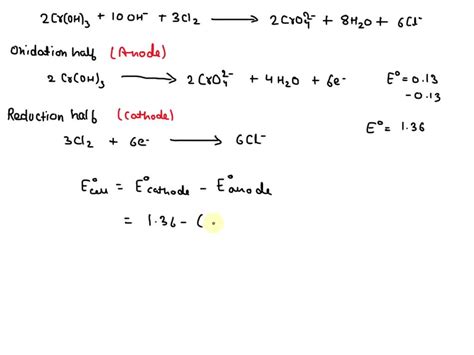 2Cr(OH)₃ + 10OH⁻ + 3Cl₂ ⟶ 2CrO₄²⁻ + 8H₂O + 6Cl⁻
Oxidation half (Anode)
2Cr(OH)₃ ⟶ 2CrO₄²⁻ + 4H₂O + 6e⁻ E° = 0.13
-0.13
Reduction half (Cathode)
E° = 1.36
3Cl₂ + 6e⁻ ⟶ 6Cl⁻
E°cell = E°cathode - E°anode
= 1.36 - (